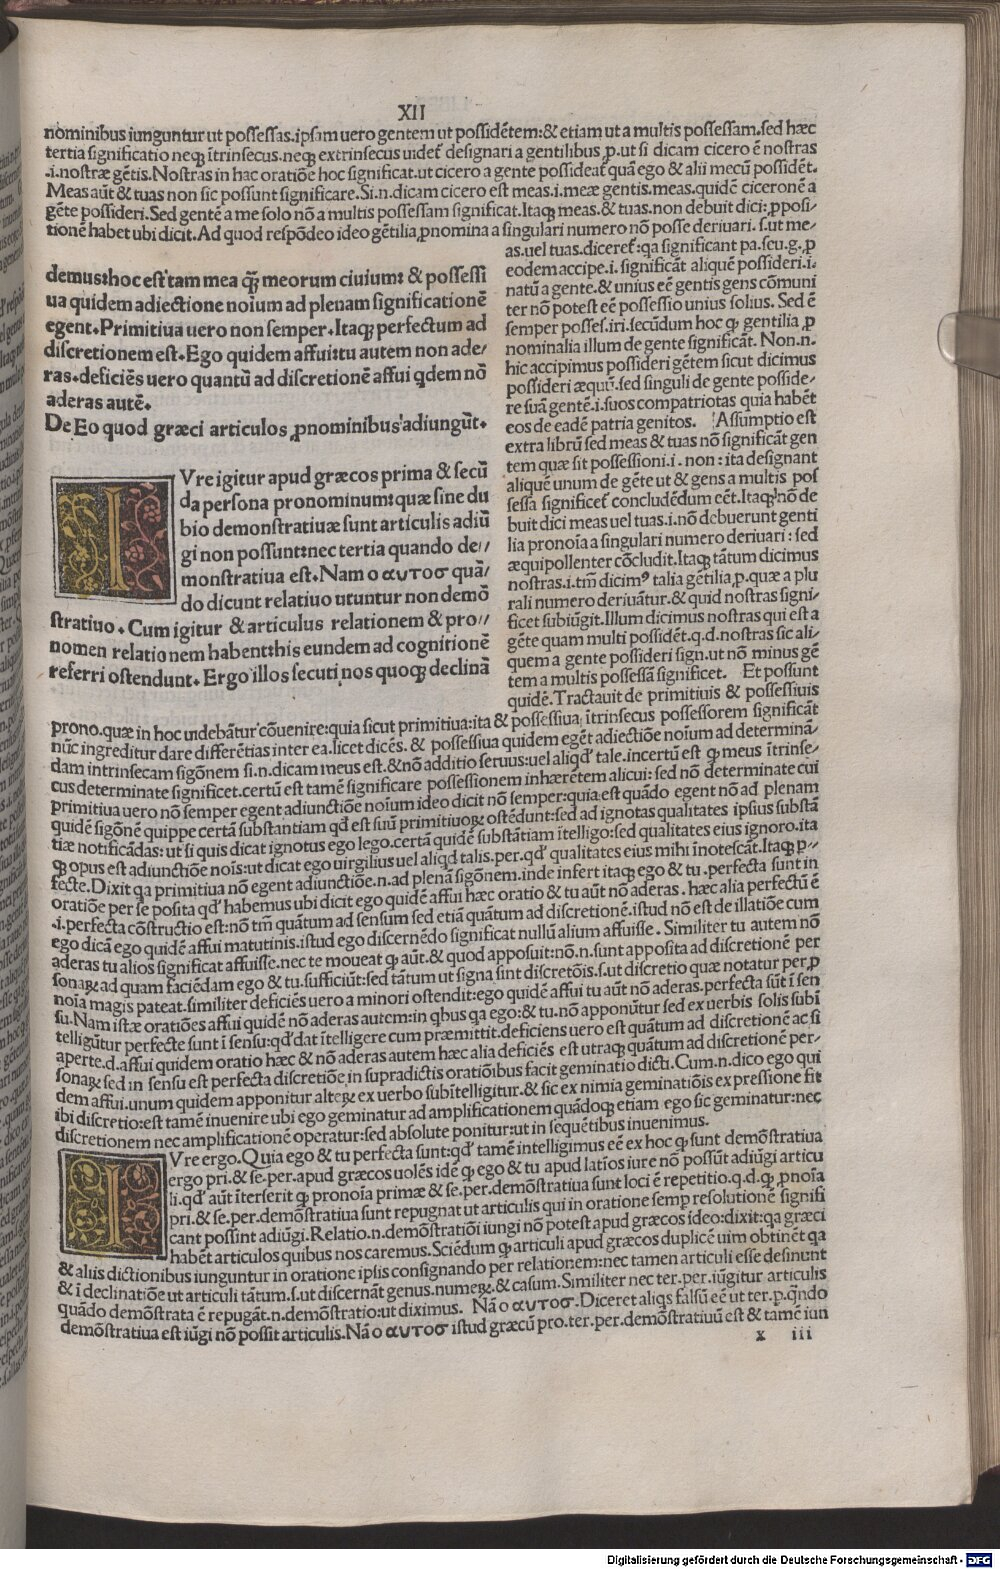 XII
nominibus iunguntur ut possessas.ipsam uero gentem ut possidētem:& etiam ut a multis possessam.sed hæc
tertia significatio neqꝫ ītrinsecus.neqꝫ extrinsecus uidet᷑ designari a gentilibus ꝓ.ut si dicam cicero ē nostras
.i.nostræ gētis.Nostras in hac oratiōe hoc significat.ut cicero a gente possideat᷑ quā ego & alii mecū possidēt.
Meas aūt & tuas non sic possunt significare.Si.n.dicam cicero est meas.i.meæ gentis.meas.quidē ciceronē a
gēte possideri.Sed gentē a me solo nō a multis possessam significat.Itaqꝫ meas.& tuas.non debuit dici:ꝓposi/
tionē habet ubi dicit.Ad quod respōdeo ideo gētilia ꝓnomina a singulari numero nō posse deriuari.s.ut me/
as.uel tuas.diceret᷑:qa significant pa.scu.g.ꝓ
eodem accipe.i.significāt aliquē possideri.i.
natū a gente.& unius eē gentis gens cōmuni
ter nō potest eē possessio unius solius. Sed ē
semper posses.iri.secūdum hoc ꝙ gentilia ꝓ
nominalia illum de gente significāt. Non.n.
hic accipimus possideri gētem sicut dicimus
possideri æquū.sed singuli de gente posside/
re suā gentē.i.suos compatriotas quia habēt
eos de eadē patria genitos. Assumptio est
extra librū sed meas & tuas nō significāt gen
tem quæ sit possessioni.i.non:ita designant
aliquē unum de gēte ut & gens a multis pos
sessa significet᷑ concludēdum eēt.Itaqꝫ nō de
buit dici meas uel tuas.i.nō debuerunt genti
lia pronoīa a singulari numero deriuari:sed
æquipollenter cōcludit.Itaqꝫ tātum dicimus
nostras.i.tm̄ dicimꝰ talia gētilia.ꝓ.quæ a plu
rali numero deriuātur.& quid nostras signi/
ficet subiūgit.Illum dicimus nostras qui est a
gēte quam multi possidēt.q.d.nostras sic ali/
quem a gente possideri sign.ut nō minus gē
tem a multis possessā significet. Et possunt
quidē.Tractauit de primitiuis & possessiuis
demus:hoc est tam mea qꝫ̄ meorum ciuium: & possessi
ua quidem adiectione noīum ad plenam significationē
egent.Primitiua uero non semper.Itaqꝫ perfectum ad
discretionem est.Ego quidem affui:tu autem non ade/
ras.deficiēs uero quantū ad discretionē affui qdem nō
aderas autē.
De Eo quod græci articulos ꝓnominibus adiungūt.
IVre igitur apud græcos prima & secū
da persona pronominum:quæ sine du
bio demonstratiuæ sunt articulis adiū
gi non possunt:nec tertia quando de//
monstratiua est.Nam ο αυτοσ quā/
do dicunt relatiuo utuntur non demō
stratiuo.Cum igitur & articulus relationem & pro//
nomen relationem habent:his eundem ad cognitionē
referri ostendunt.Ergo illos secuti nos quoqꝫ declinā
prono.quæ in hoc uidebātur cōuenire:quia sicut primitiua:ita & possessiua ītrinsecus possessorem significāt
nūc ingreditur dare differētias inter ea.licet dicēs.& possessiua quidem egēt adiectiōe noīum ad determinā/
dam intrinsecam sigōnem si.n.dicam meus est.& nō additio seruus:uel aliqd' tale.incertū est ꝙ meus ītrinse/
cus determinate significet.certū est tamē significare possessionem inhærētem alicui:sed nō determinate cui
primitiua uero nō semper egent adiunctiōe noīum ideo dicit nō semper:quia est quādo egent nō ad plenam
quidē sigōnē quippe certā substantiam qd̄ est suū primitiuoꝝ ostēdunt:sed ad ignotas qualitates ipsius substā
tiæ notificādas:ut si quis dicat ignotus ego lego.certā quidē substātiam ītelligo:sed qualitates eius ignoro.ita
ꝙ opus est adiunctiōe noīs:ut dicat ego uirgilius uel aliqd talis.per.qd' qualitates eius mihi īnotescāt.Itaqꝫ p//
fecte.Dixit qa primitiua nō egent adiunctiōe.n.ad plenā sigōnem.inde infert itaqꝫ ego & tu.perfecta sunt in
oratiōe per se posita qd' habemus ubi dicit ego quidē affui hæc oratio & tu aūt nō aderas.hæc alia perfectū ē
.i.perfecta cōstructio est:nō tm̄ quātum ad sensum sed etiā quātum ad discretionē.istud nō est de illatiōe cum
ego dicā ego quidē affui matutinis.istud ego discernēdo significat nullū alium affuisse.Similiter tu autem nō
aderas tu alios significat affuisse.nec te moueat ꝙ aūt.& quod apposuit:nō.n.sunt apposita ad discretionē per
sonaꝝ ad quam faciēdam ego & tu.sufficiūt:sed tātum ut signa sint discretōis.s.ut discretio quæ notatur per.ꝓ
noīa magis pateat.similiter deficiēs uero a minori ostendit:ego quidē affui tu aūt nō aderas.perfecta sūt ī sen
su.Nam istæ oratiōes affui quidē nō aderas autem:in qbus qa ego:& tu.nō apponūtur sed ex uerbis solis subī
telligūtur perfecte sunt ī sensu:qd' dat ītelligere cum præmittit.deficiens uero est quātum ad discretionē ac si
aperte.d.affui quidem oratio hæc & nō aderas autem hæc alia deficiēs est utraqꝫ quātum ad discretionē per/
sonaꝝ sed in sensu est perfecta discretiōe in supradictis oratiōibus facit geminatio dicti.Cum.n.dico ego qui
dem affui.unum quidem apponitur alteꝝ ex uerbo subītelligitur.& sic ex nimia geminatiōis expressione fit
ibi discretio:est tamē inuenire ubi ego geminatur ad amplificationem quādoqꝫ etiam ego sic geminatur:nec
discretionem nec amplificationē operatur:sed absolute ponitur:ut in sequētibus inuenimus.
IVre ergo.Quia ego & tu perfecta sunt:qd' tamē intelligimus eē ex hoc ꝙ sunt demōstratiua
ergo pri.& se.per.apud græcos uolēs idē ꝙ ego & tu apud latīos iure nō possūt adiūgi articu
li.qd' aūt īterserit ꝙ pronoīa primæ & se.per.demōstratiua sunt loci ē repetitio.q.d.ꝙ ꝓnoīa
pri.& se.per.demōstratiua sunt repugnat ut articulis qui in oratione semp resolutionē signifi
cant possint adiūgi.Relatio.n.demōstratiōi iungi nō potest apud græcos ideo:dixit:qa græci
habēt articulos quibus nos caremus.Sciēdum ꝙ articuli apud græcos duplicē uim obtinēt qa
& aliis dictionibus iunguntur in oratione ipsis consignando per relationem:nec tamen articuli esse desinunt
& ī declinatiōe ut articuli tātum.s.ut discernāt genus.numeꝝ.& casum.Similiter nec ter.per.iūgitur articulis
quādo demōstrata ē repugāt.n.demōstratio:ut diximus. Nā ο αυτοσ.Diceret aliqs falsū eē ut ter.p.qn̄do
demōstratiua est iūgi nō possit articulis.Nā ο αυτοσ istud græcū pro.ter.per.demōstratiuū est & tamē iun
x iii
Digitalisierung gefördert durch die Deutsche Forschungsgemeinschaft - DFG